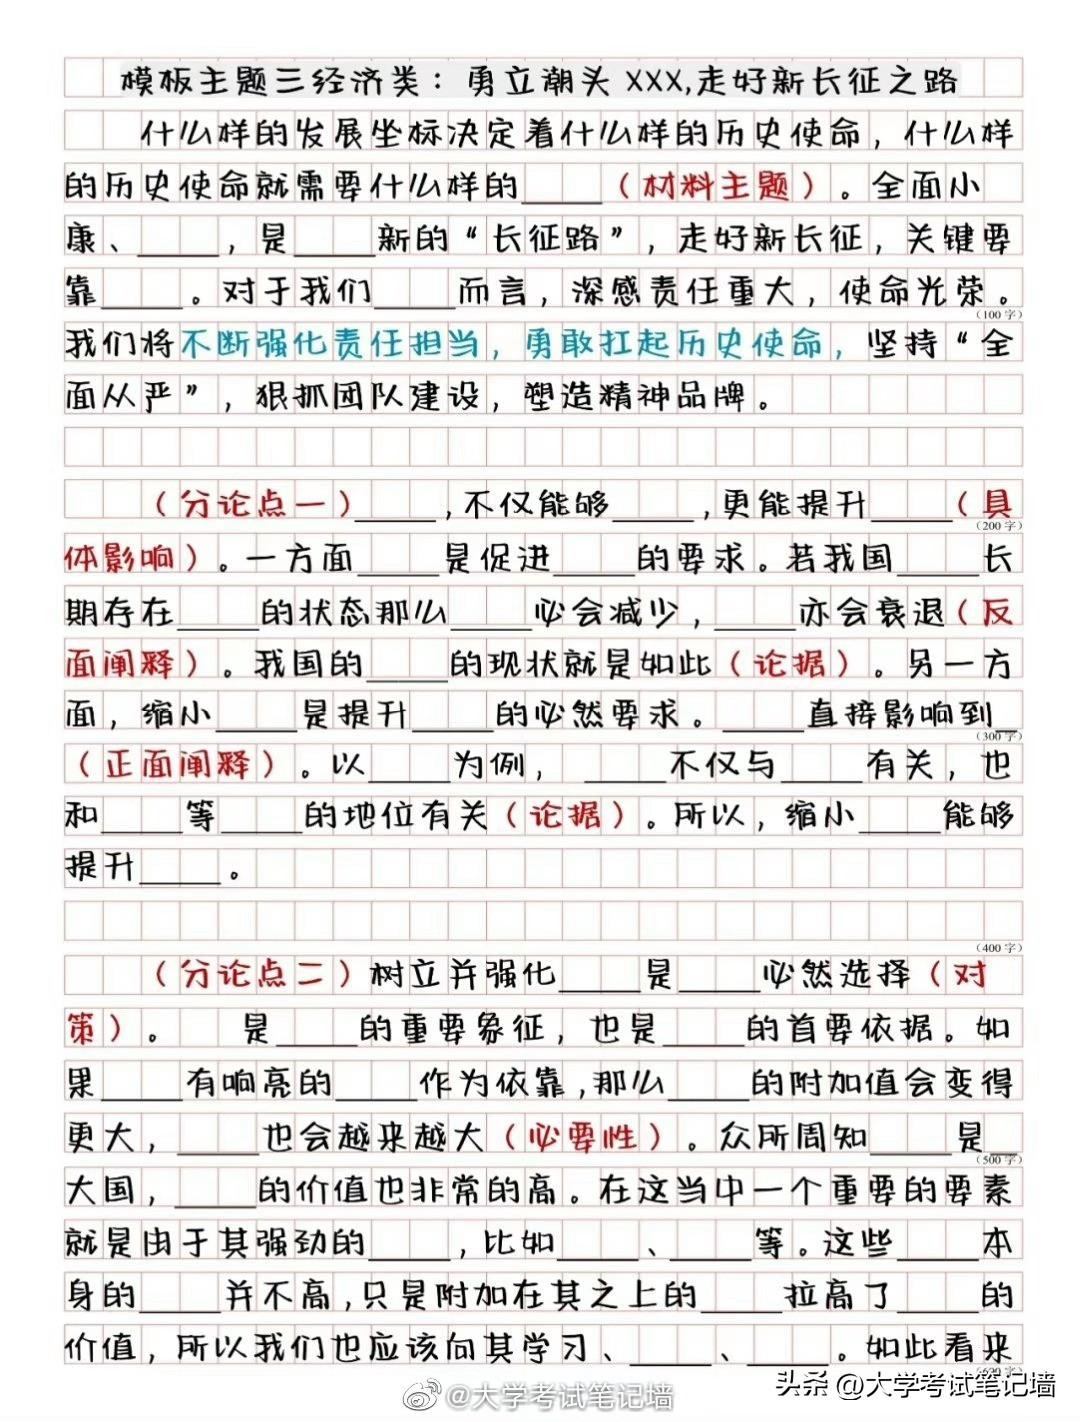 模板主题三经济类：勇立潮头XXX,走好新长征之路
什么样的发展坐标决定着什么样的历史使命，什么样
的历史使命就需要什么样的____（材料主题）。全面小
康、____，是____新的“长征路”，走好新长征，关键要
靠____。对于我们____而言，深感责任重大，使命光荣。
（100字）
我们将不断强化责任担当，勇敢扛起历史使命，坚持“全
面从严”，狠抓团队建设，塑造精神品牌。
（分论点一）____,不仅能够____,更能提升____（具
（200字）
体影响）。一方面____是促进____的要求。若我国____长
期存在____的状态那么____必会减少，____亦会衰退（反
面阐释）。我国的____的现状就是如此（论据）。另一方
面，缩小____是提升____的必然要求。____直接影响到_
（300字）
（正面阐释）。以____为例，____不仅与____有关，也
和____等____的地位有关（论据）。所以，缩小____能够
提升____。
（400字）
（分论点二）树立并强化____是____必然选择（对
策）。 是____的重要象征，也是____的首要依据。如
果____有响亮的____作为依靠,那么____的附加值会变得
更大，____也会越来越大（必要性）。众所周知____是_
（500字）
大国，____的价值也非常的高。在这当中一个重要的要素
就是由于其强劲的____,比如____、____等。这些____本
身的____并不高,只是附加在其之上的____拉高了____的
价值，所以我们也应该向其学习、____、____。如此看来
（600字）
@大学考试笔记墙
头条 @大学考试笔记墙